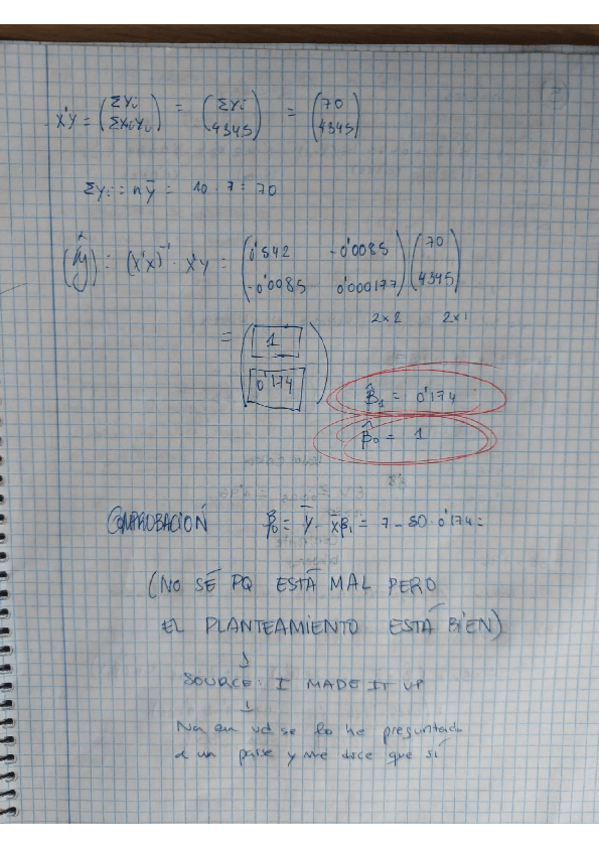 X'Y = (ΣYi ΣXiYi) = (ΣYi 4345) = (70 4345)
ΣYi = nȳ = 10 · 7 = 70
= (X'X)⁻¹ · X'Y = (0'542 -0'0085 -0'0085 0'000177) (70 4345)
2x2 2x1
= (1 0'174)
β̂₁ = 0'174
β̂₀ = 1
COMPROBACIÓN β₀ = Ȳ - X̄β₁ = 7 - 50 · 0'174 =
(NO SÉ PQ ESTÁ MAL PERO
EL PLANTEAMIENTO ESTÁ BIEN)
↓
SOURCE: I MADE IT UP
↓
Na en vd se lo he preguntado
a un y me dice que sí